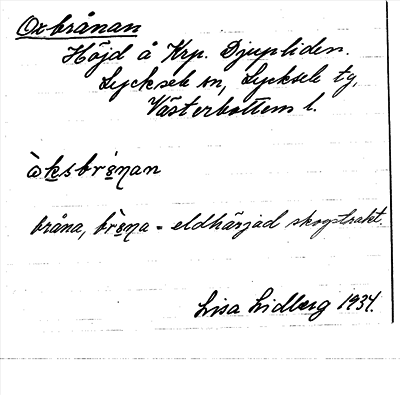 Oxbrånan
Höjd å Krp. Djupliden.
Lycksele sn, Lycksele tg,
Västerbottens l.
bråna, = eldhärjad skogstrakt.
Lisa Lidberg 1934.